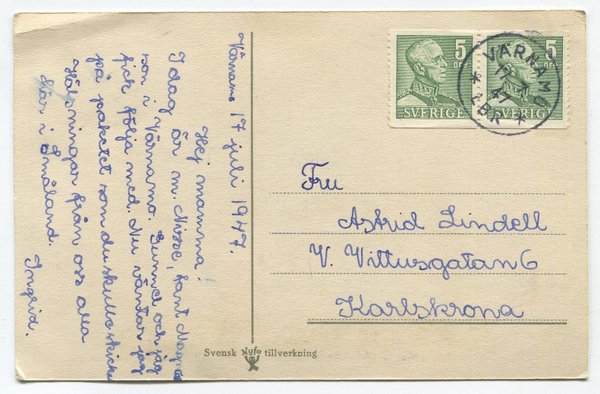 Värnamo 17 juli 1947.
Hej mamma!
I dag är m. Nisse, samt
son i Värnamo. Gunnel och jag
fick följa med. Nu väntar jag
på paketet som du skulle skicka
Hälsningar från oss alla
här i Småland.
Ingrid.
5 ÖRE
SVERIGE
5 ÖRE
SVERIGE
VÄRNAMO
17 7
47
* LBR *
Fru
Astrid Lindell
V. Vittusgatan 6
Karlskrona
Svensk Nyfo tillverkning